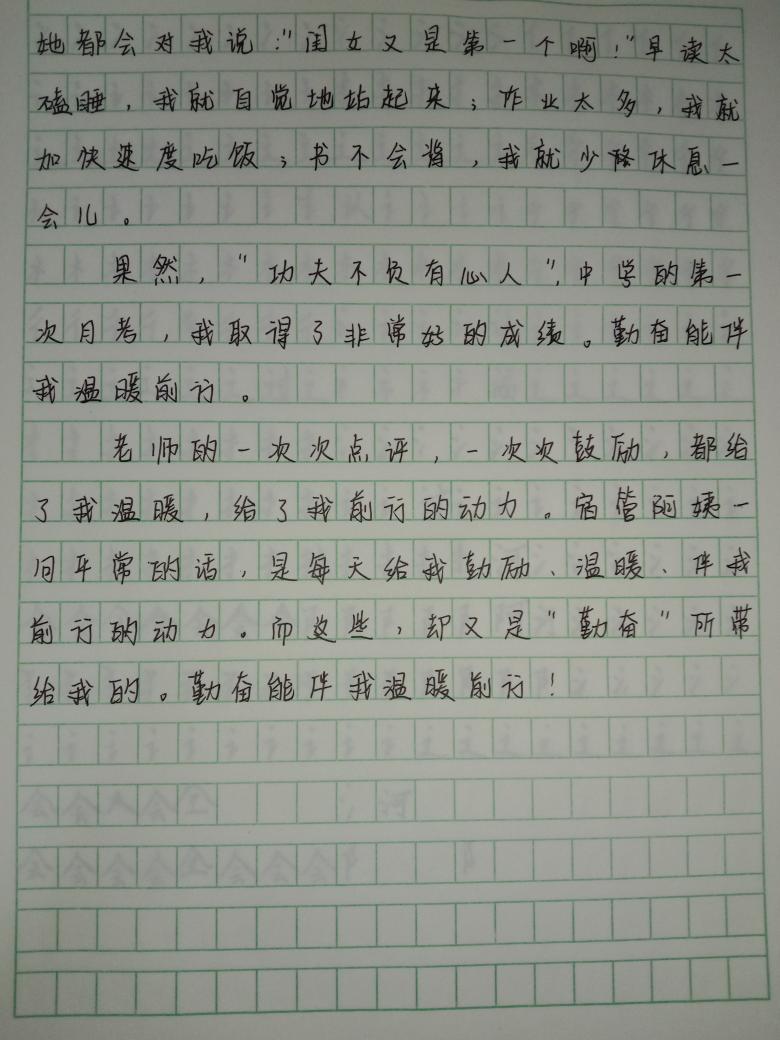 她都会对我说：“闺女又是第一个啊！”早读太
瞌睡，我就自觉地站起来；作业太多，我就
加快速度吃饭；书不会背，我就少休息一
会儿。
果然，“功夫不负有心人”，中学的第一
次月考，我取得了非常好的成绩。勤奋能伴
我温暖前行。
老师的一次次点评，一次次鼓励，都给
了我温暖，给了我前行的动力。宿管阿姨一
间平常的话，是每天给我鼓励、温暖、伴我
前行的动力。而这些，却又是“勤奋”所带
给我的。勤奋能伴我温暖前行！